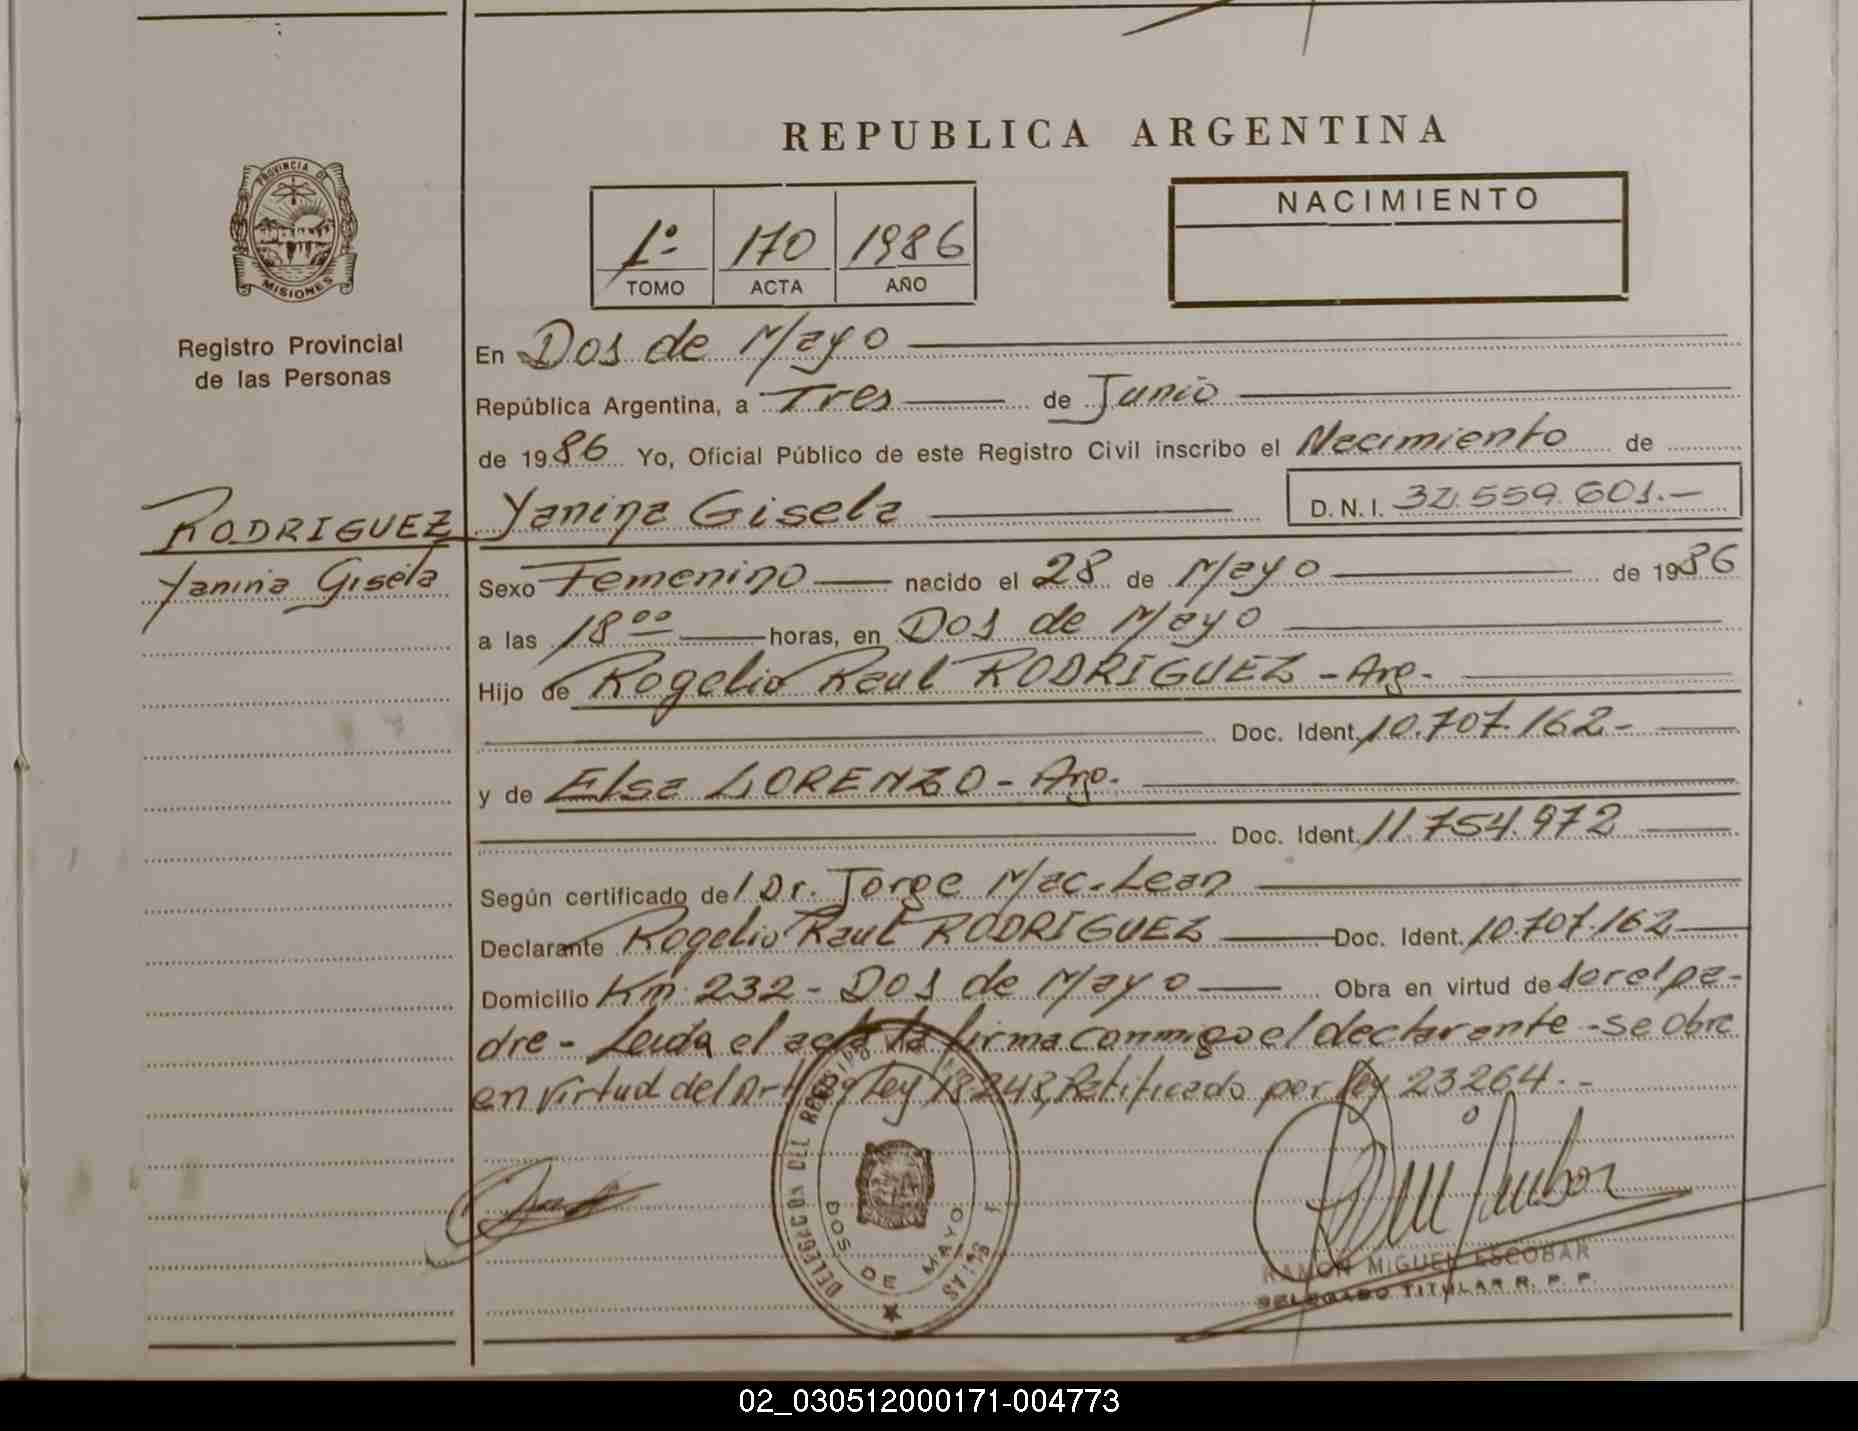 REPUBLICA ARGENTINA
PROVINCIA DE
MISIONES
Registro Provincial
de las Personas
1º 170 1986
TOMO ACTA AÑO
NACIMIENTO
En Dos de Mayo
República Argentina, a Tres de Junio
de 1986 Yo, Oficial Público de este Registro Civil inscribo el Nacimiento de
RODRIGUEZ
Yanina Gisela
Yanina Gisela D.N.I. 32.559.601.-
Sexo Femenino nacido el 28 de Mayo de 1986
a las 18 00 horas, en Dos de Mayo
Hijo de Rogelio Raul RODRIGUEZ - Arg.
Doc. Ident. 10.707.162-
y de Elsa LORENZO - Arg.
Doc. Ident. 11.754.972
Según certificado del Dr. Jorge Mac-Lean
Declarante Rogelio Raul RODRIGUEZ Doc. Ident. 10.707.162
Domicilio Km. 232 - Dos de Mayo Obra en virtud de ser el pa-
dre - Leida el acta la firma conmigo el declarante - se obre
en virtud del Art. Ley 18.248, Ratificado por ley 23264.-
DELEGACION DEL
DOS DE MAYO
RAMON MIGUEL ESCOBAR
DELEGADO TITULAR R. P. P.
02_030512000171-004773